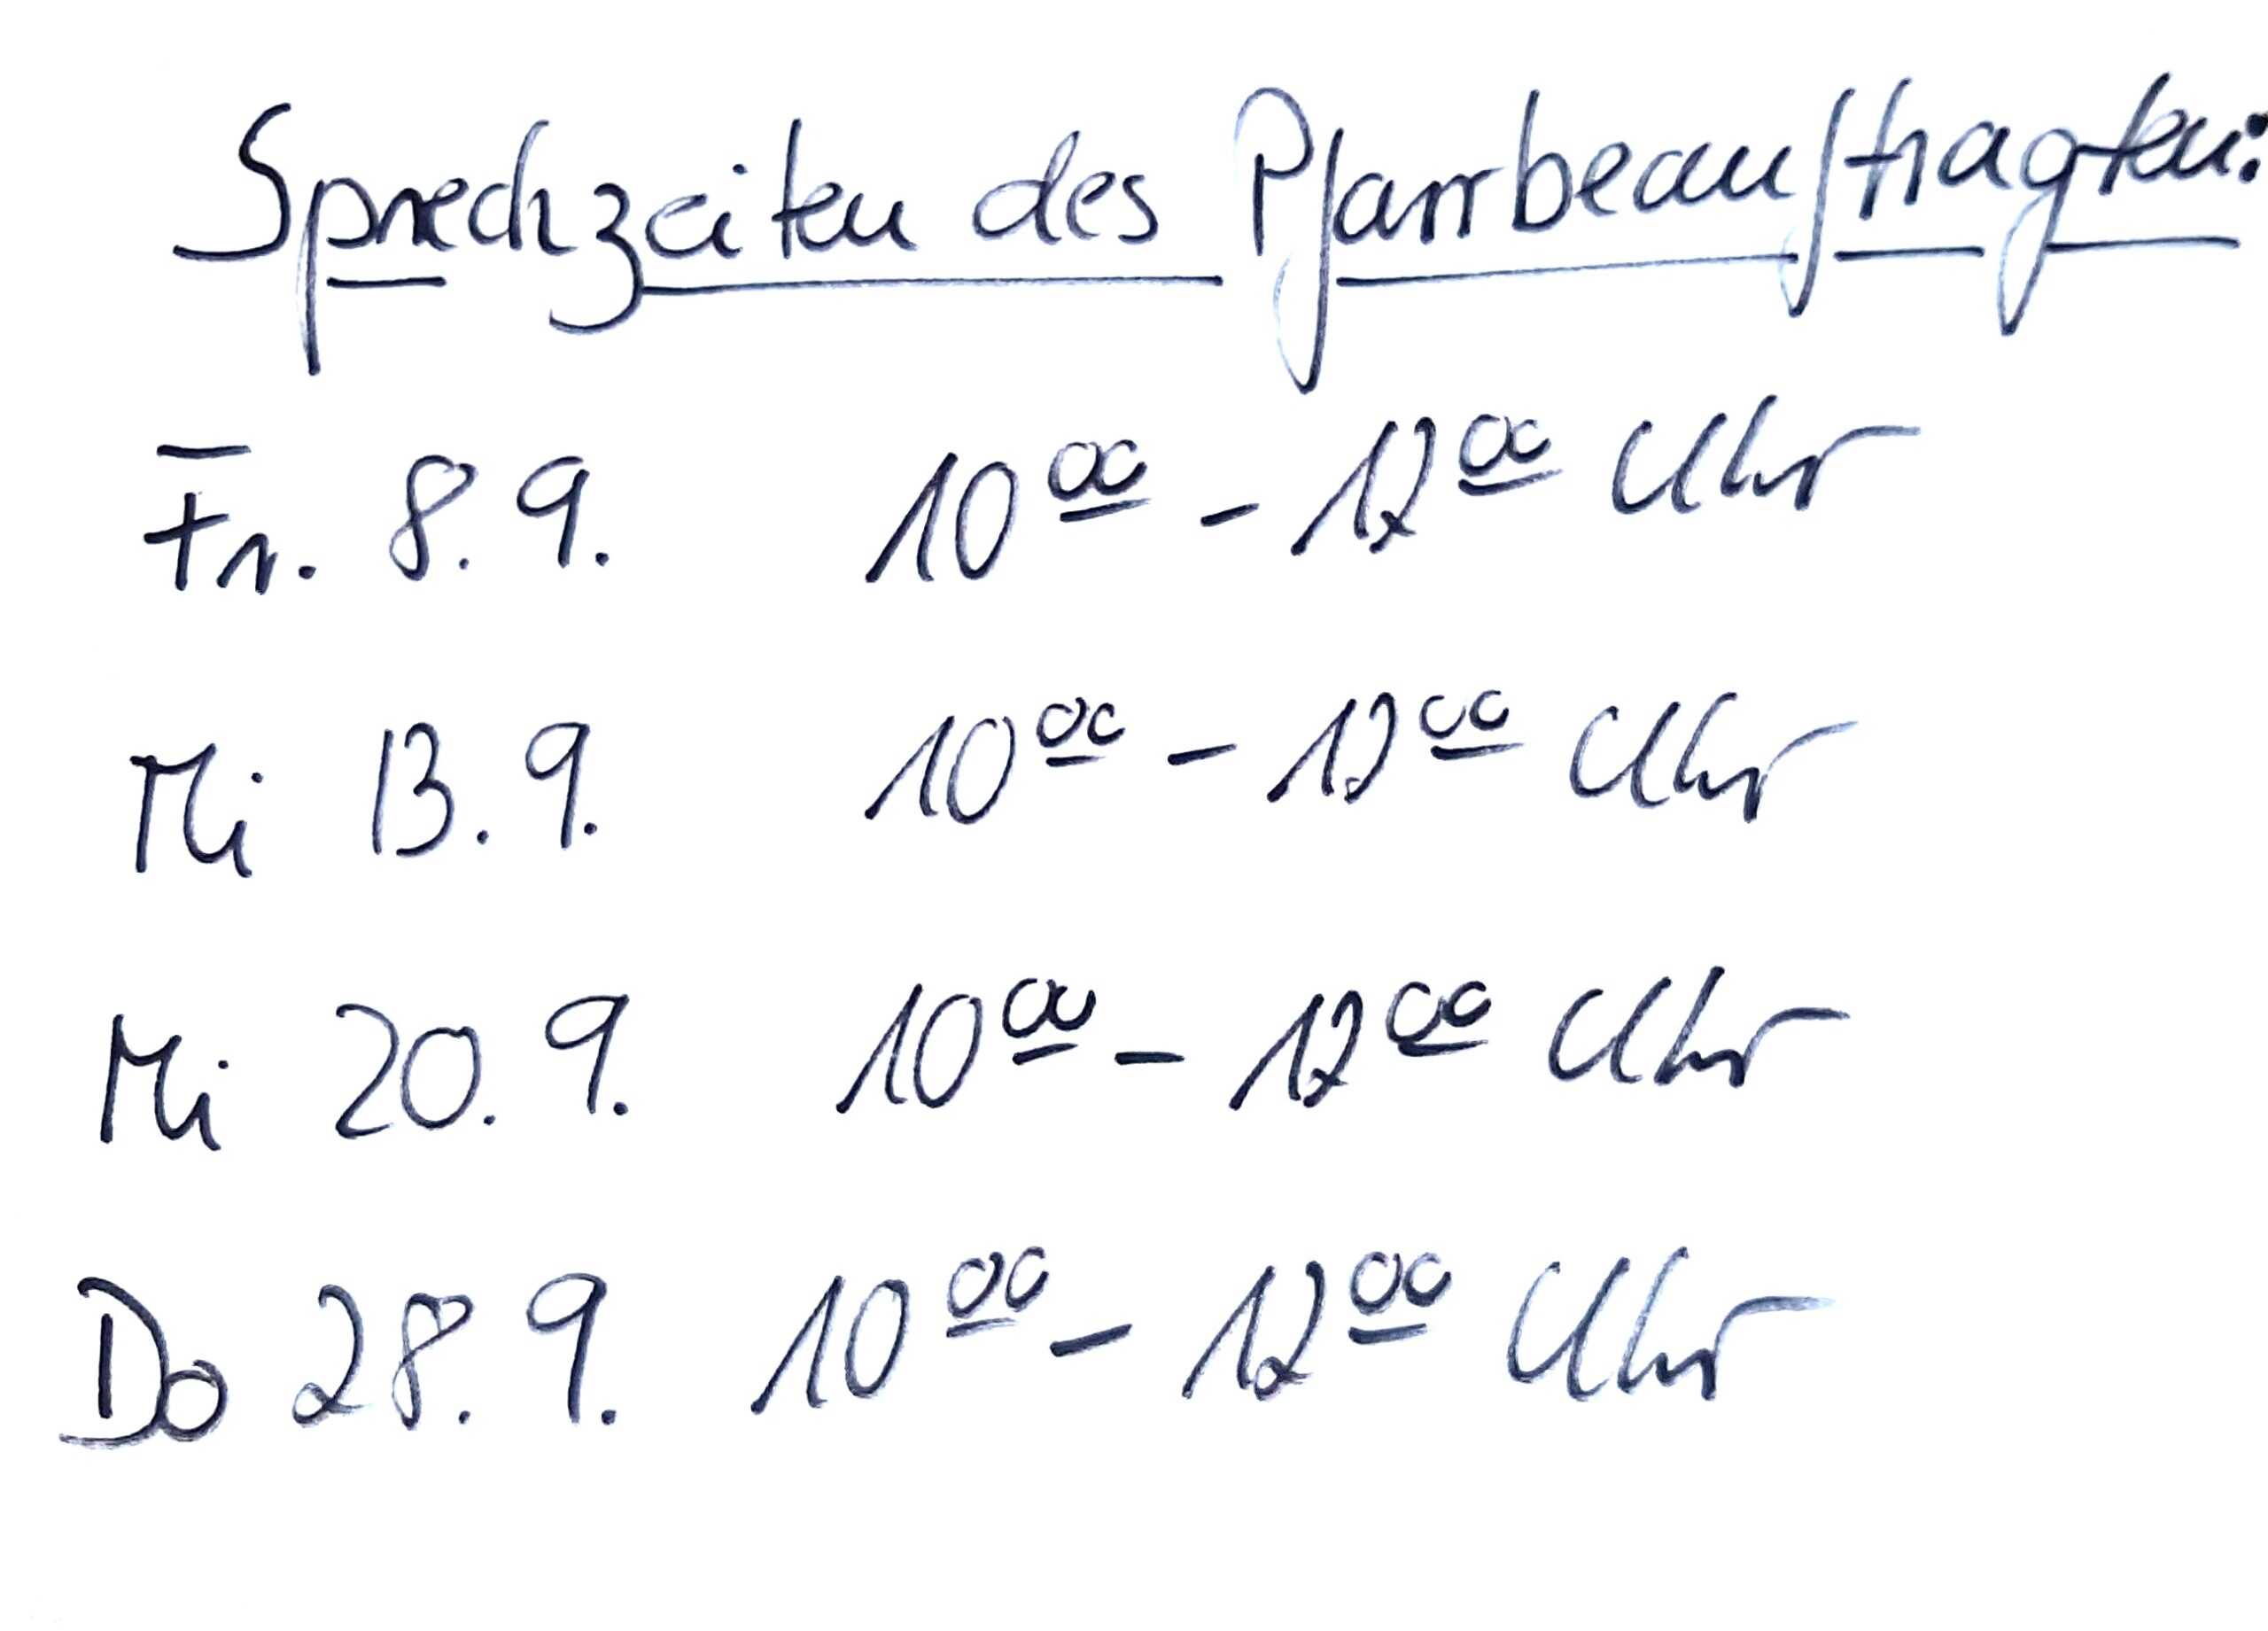 Sprechzeiten des Pfarrbeauftragten:
Fr. 8. 9. 10⁰⁰ - 12⁰⁰ Uhr
Mi 13. 9. 10⁰⁰ - 12⁰⁰ Uhr
Mi 20. 9. 10⁰⁰ - 12⁰⁰ Uhr
Do 28. 9. 10⁰⁰ - 12⁰⁰ Uhr